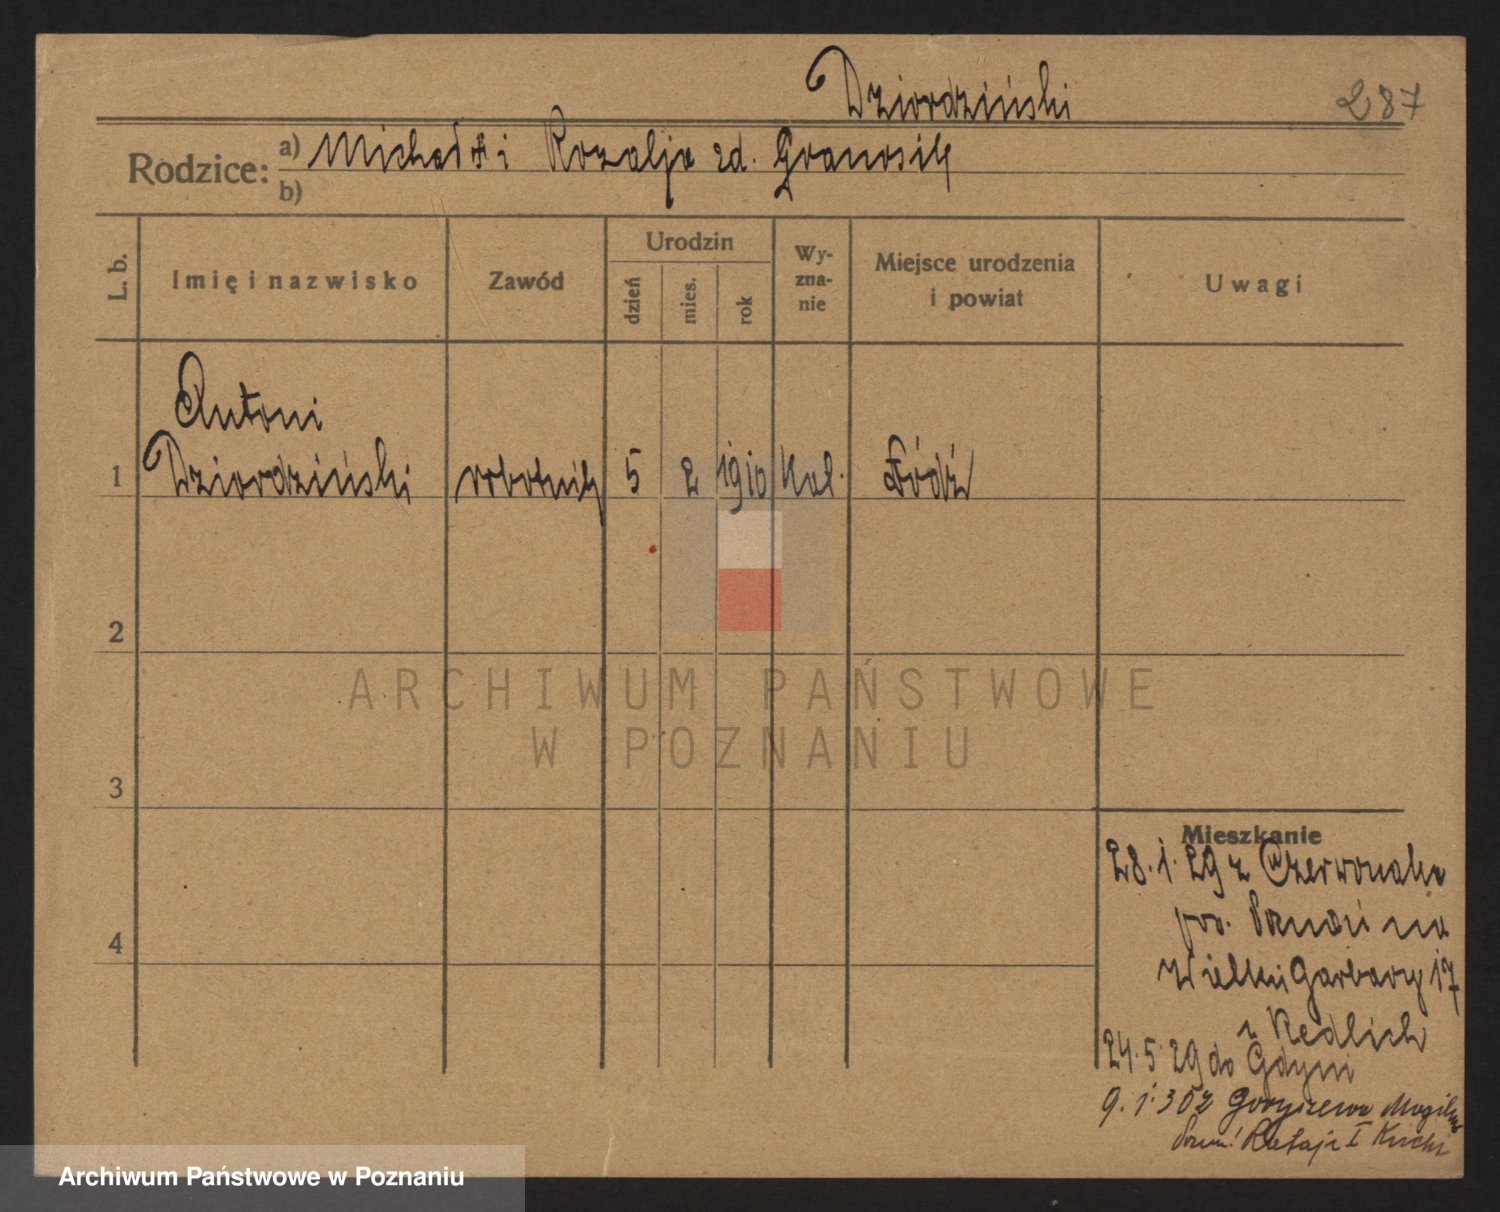 Dziordziński
287
Rodzice:
a) Michał i Rozalja zd. Granosik
b)
L. b.
Imię i nazwisko
Zawód
Urodzin
dzień
mies.
rok
Wy-
zna-
nie
Miejsce urodzenia
i powiat
Uwagi
Antoni
1 Dziordziński robotnik 5 2 1910 kat. Łódź
2
3
4
ARCHIWUM PAŃSTWOWE
W POZNANIU
Mieszkanie
28.1.29 z Czerwonaka
pow. Poznań na
Wielkie Garbary 17
z Redlich
24.5.29 do Gdyni
9.1.30 z
Rataje I
Archiwum Państwowe w Poznaniu